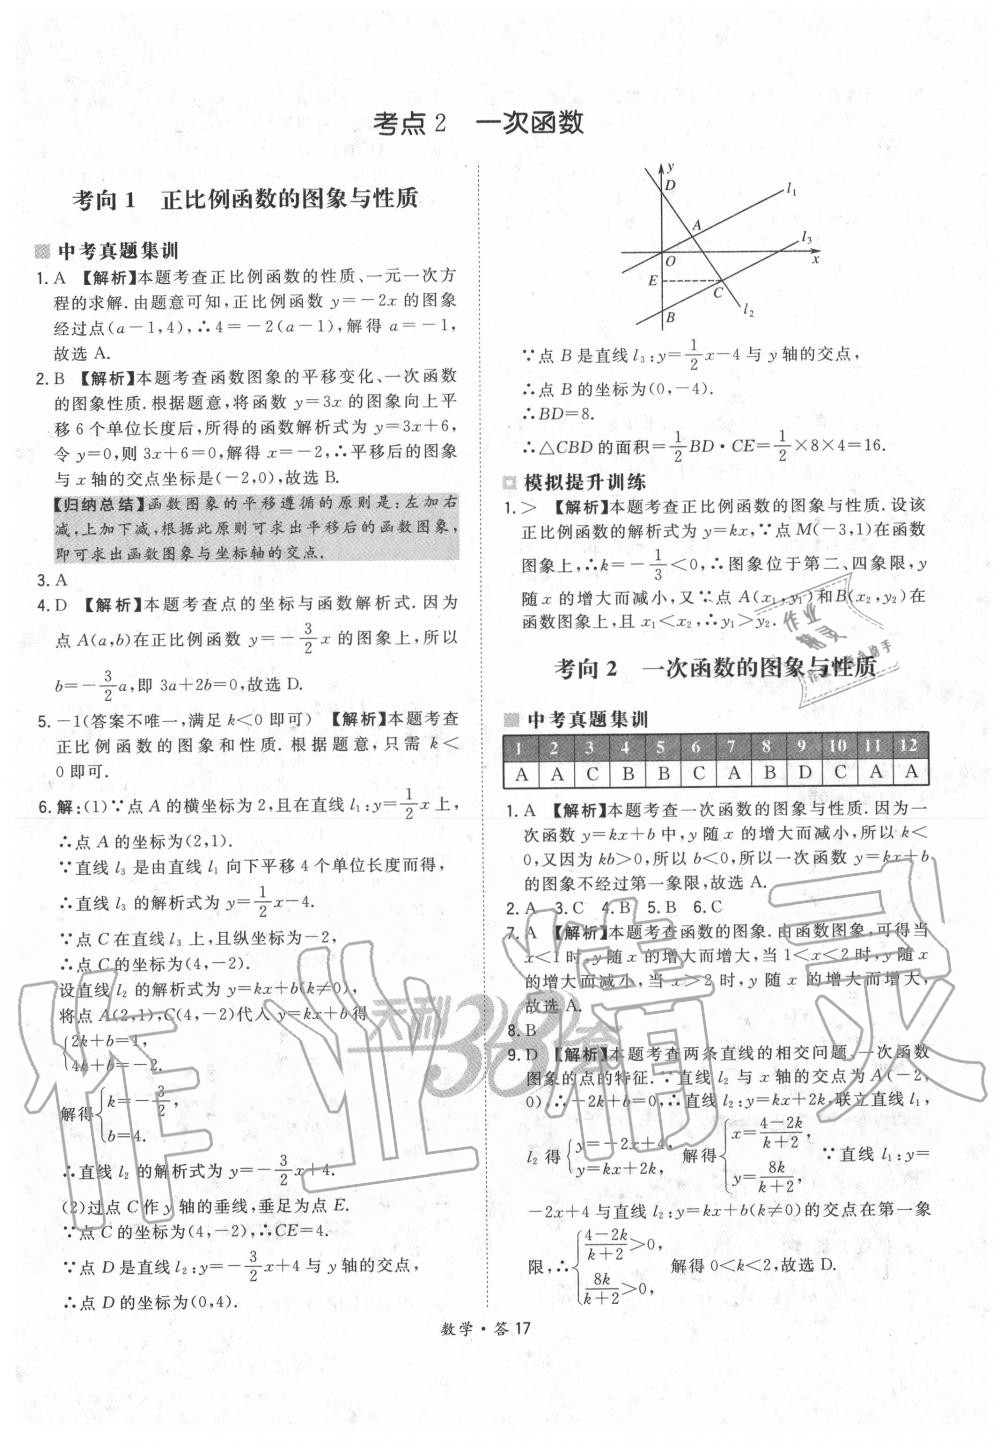 考点2　一次函数
考向1　正比例函数的图象与性质
中考真题集训
1. A 【解析】本题考查正比例函数的性质、一元一次方
程的求解.由题意可知,正比例函数 y=-2x 的图象
经过点(a-1,4),∴4=-2(a-1),解得 a=-1,
故选 A.
2. B 【解析】本题考查函数图象的平移变化、一次函数
的图象性质.根据题意,将函数 y=3x 的图象向上平
移6个单位长度后,所得的函数解析式为 y=3x+6,
令 y=0,则3x+6=0,解得 x=-2,∴平移后的图象
与 x 轴的交点坐标是(-2,0),故选B.
【归纳总结】函数图象的平移遵循的原则是:左加右
减,上加下减,根据此原则可求出平移后的函数图象,
即可求出函数图象与坐标轴的交点.
3. A
4. D 【解析】本题考查点的坐标与函数解析式.因为
点 A(a,b)在正比例函数 y=-3/2x 的图象上,所以
b=-3/2a,即 3a+2b=0,故选 D.
5. -1(答案不唯一,满足 k<0 即可) 【解析】本题考查
正比例函数的图象和性质.根据题意,只需 k<
0即可.
6. 解:(1)∵点 A 的横坐标为2,且在直线 l₁:y=1/2x上,
∴点 A 的坐标为(2,1).
∵直线 l₃ 是由直线 l₁ 向下平移4个单位长度而得,
∴直线 l₃ 的解析式为 y=1/2x-4.
∵点 C 在直线 l₃ 上,且纵坐标为-2,
∴点 C 的坐标为(4,-2).
设直线 l₂ 的解析式为 y=kx+b(k≠0),
将点 A(2,1),C(4,-2)代入 y=kx+b得
{2k+b=1,
4k+b=-2,
解得{k=-3/2,
b=4.
∴直线 l₂ 的解析式为 y=-3/2x+4.
(2)过点 C 作 y 轴的垂线,垂足为点 E.
∵点 C 的坐标为(4,-2),∴CE=4.
∵点 D 是直线 l₂:y=-3/2x+4 与 y 轴的交点,
∴点 D 的坐标为(0,4).
y
D
l₁
A
l₃
O
x
E
C
B
l₂
∵点 B 是直线 l₃:y=1/2x-4 与 y 轴的交点,
∴点 B 的坐标为(0,-4).
∴BD=8.
∴△CBD 的面积=1/2BD·CE=1/2×8×4=16.
模拟提升训练
1. > 【解析】本题考查正比例函数的图象与性质.设该
正比例函数的解析式为 y=kx,∵点 M(-3,1)在函数
图象上,∴k=-1/3<0,∴图象位于第二、四象限,y
随 x 的增大而减小,又∵点 A(x₁,y₁)和B(x₂,y₂)在
函数图象上,且 x₁<x₂,∴y₁>y₂.
考向2　一次函数的图象与性质
中考真题集训
1 2 3 4 5 6 7 8 9 10 11 12
A A C B B C A B D C A A
1. A 【解析】本题考查一次函数的图象与性质.因为一
次函数 y=kx+b 中,y 随 x 的增大而减小,所以 k<
0,又因为 kb>0,所以 b<0,所以一次函数 y=kx+b
的图象不经过第一象限,故选 A.
2. A 3. C 4. B 5. B 6. C
7. A 【解析】本题考查函数的图象.由函数图象,可得当
x<1时,y 随 x 的增大而增大,当 1<x<2 时,y 随 x
的增大而减小,当 x>2 时,y 随 x 的增大而增大,
故选 A.
8. B
9. D 【解析】本题考查两条直线的相交问题.一次函数
图象的点的特征.∵直线 l₂ 与 x 轴的交点为 A(-2,
0).∴-2k+b=0,∴直线 l₂:y=kx+2k,联立直线 l₁,
l₂ 得{y=-2x+4, y=kx+2k, 解得{x=(4-2k)/(k+2), y=8k/(k+2). ∵直线 l₁:y=
-2x+4 与直线 l₂:y=kx+b(k≠0)的交点在第一象
限,∴{(4-2k)/(k+2)>0, 8k/(k+2)>0, 解得 0<k<2,故选 D.
数学·答 17
作业精灵
天利38套
作业
精灵